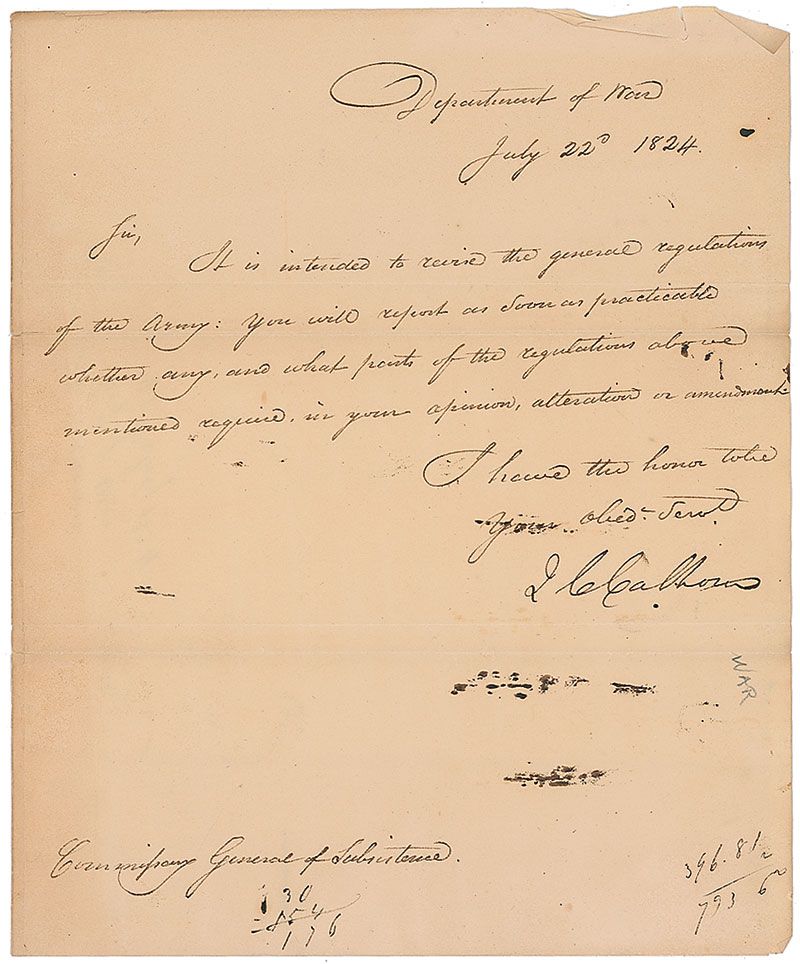 Department of War
July 22d 1824.
Sir,
It is intended to revise the general regulations
of the Army: You will report as soon as practicable
whether any, and what parts of the regulations above
mentioned require, in your opinion, alteration or amendment.
I have the honor to be
Your Obedt. Servt.
J C Calhoun
WAR
Commissary General of Subsistence.
396.81
2
793 62
30
176